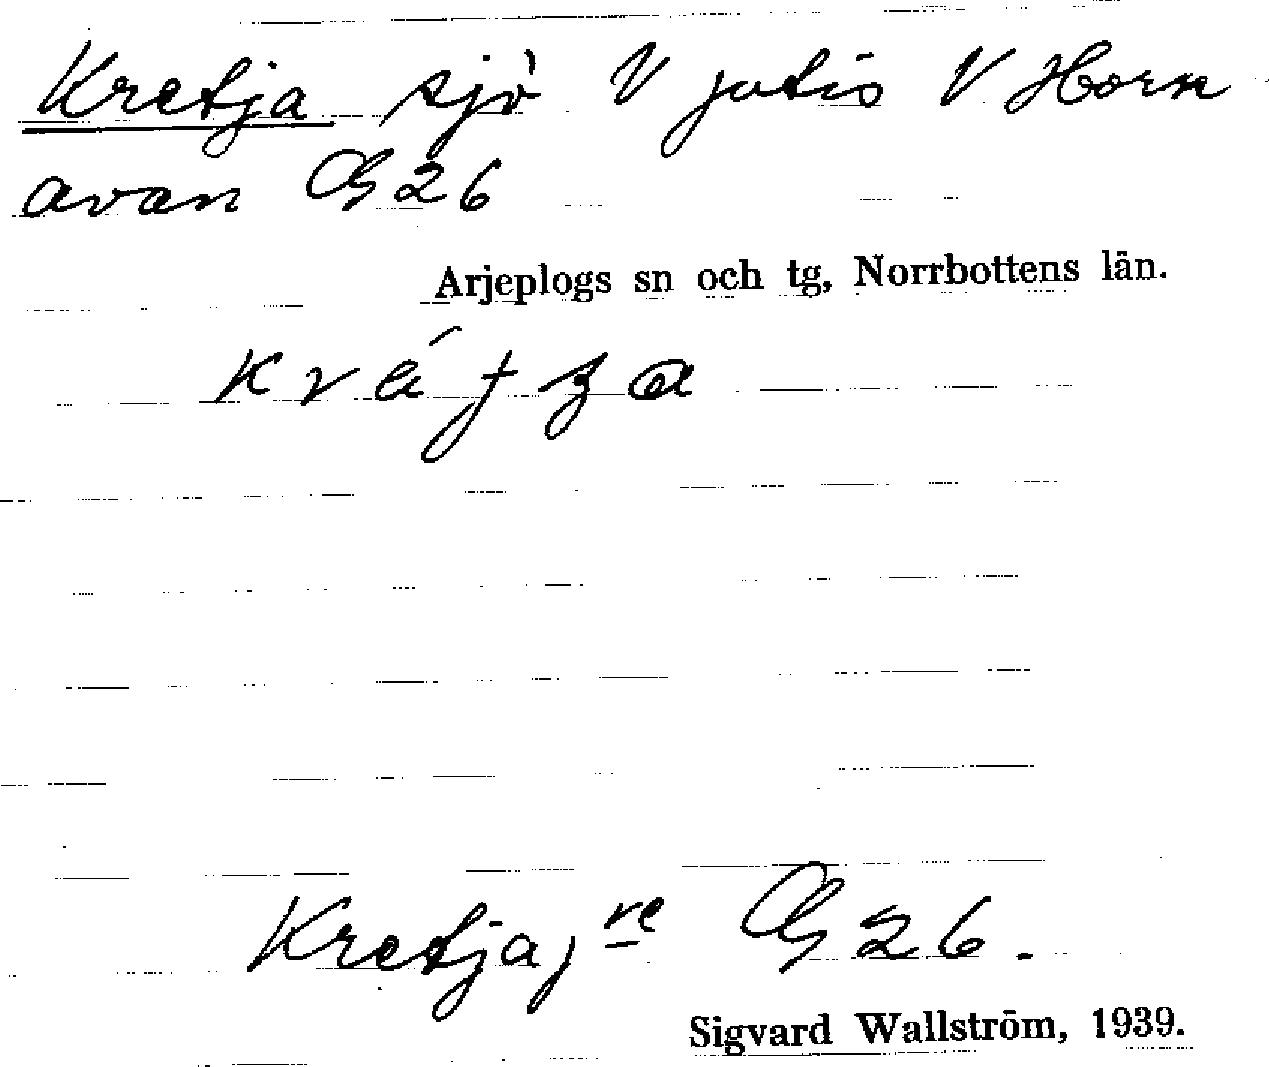 Kretja sjö V jutis V Horn
avan G26
Arjeplogs sn och tg, Norrbottens län.
Kretja, re G26.
Sigvard Wallström, 1939.